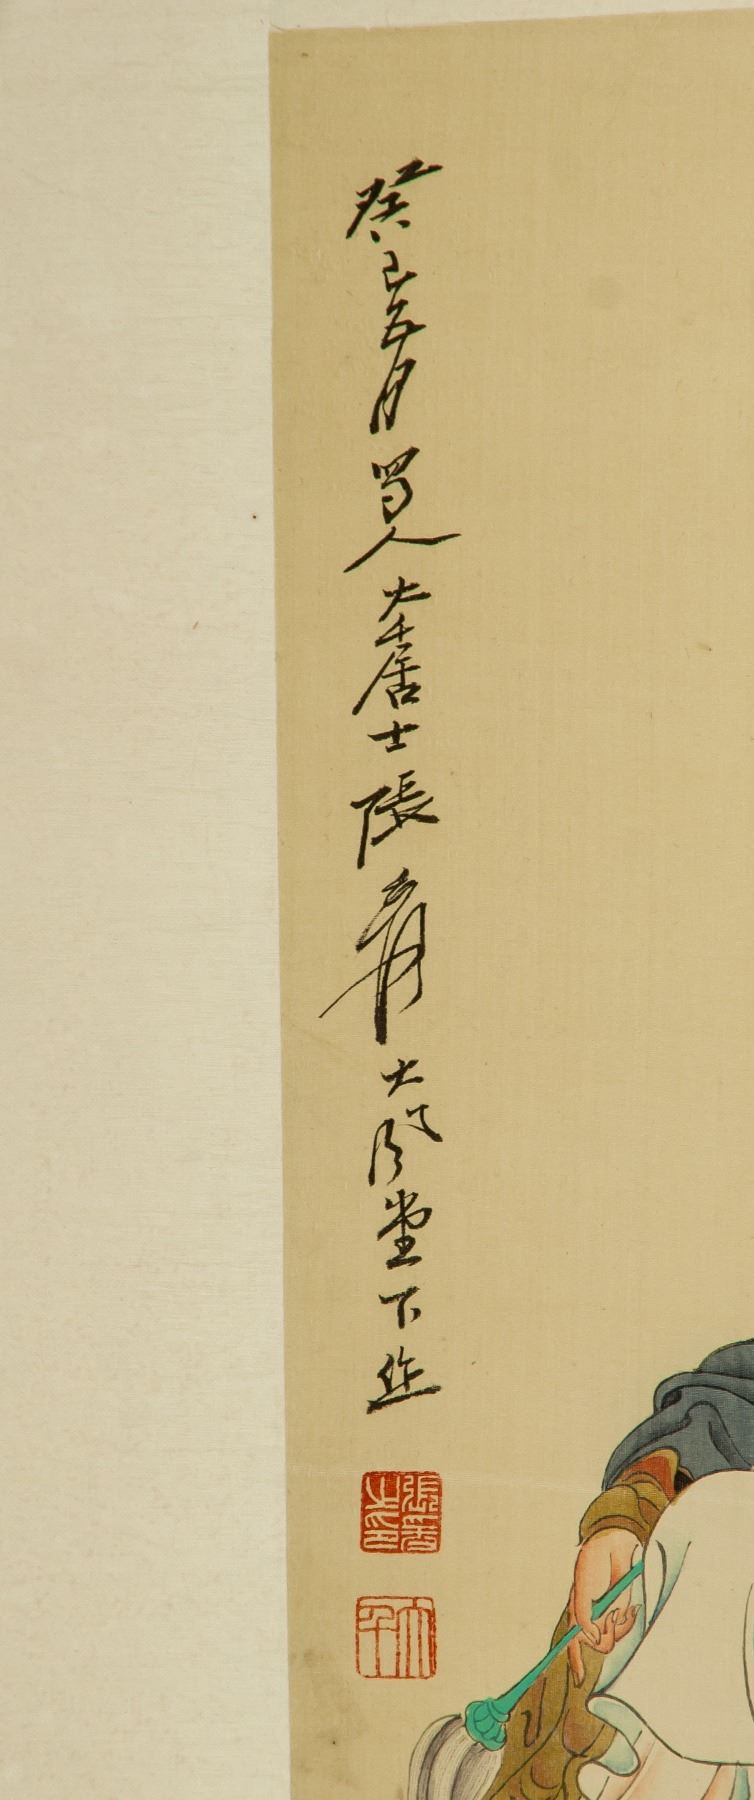 癸巳五月蜀人大千居士張爰大風堂下作
張爰之印
大千